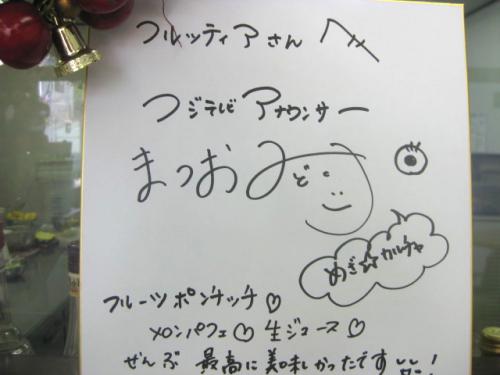 フルッティアさん へ
フジテレビ アナウンサー
まつおみど
めざ☆カルチャ
フルーツ ポンチッチ♡
メロンパフェ♡生ジュース♡
ぜんぶ 最高に美味しかったです!